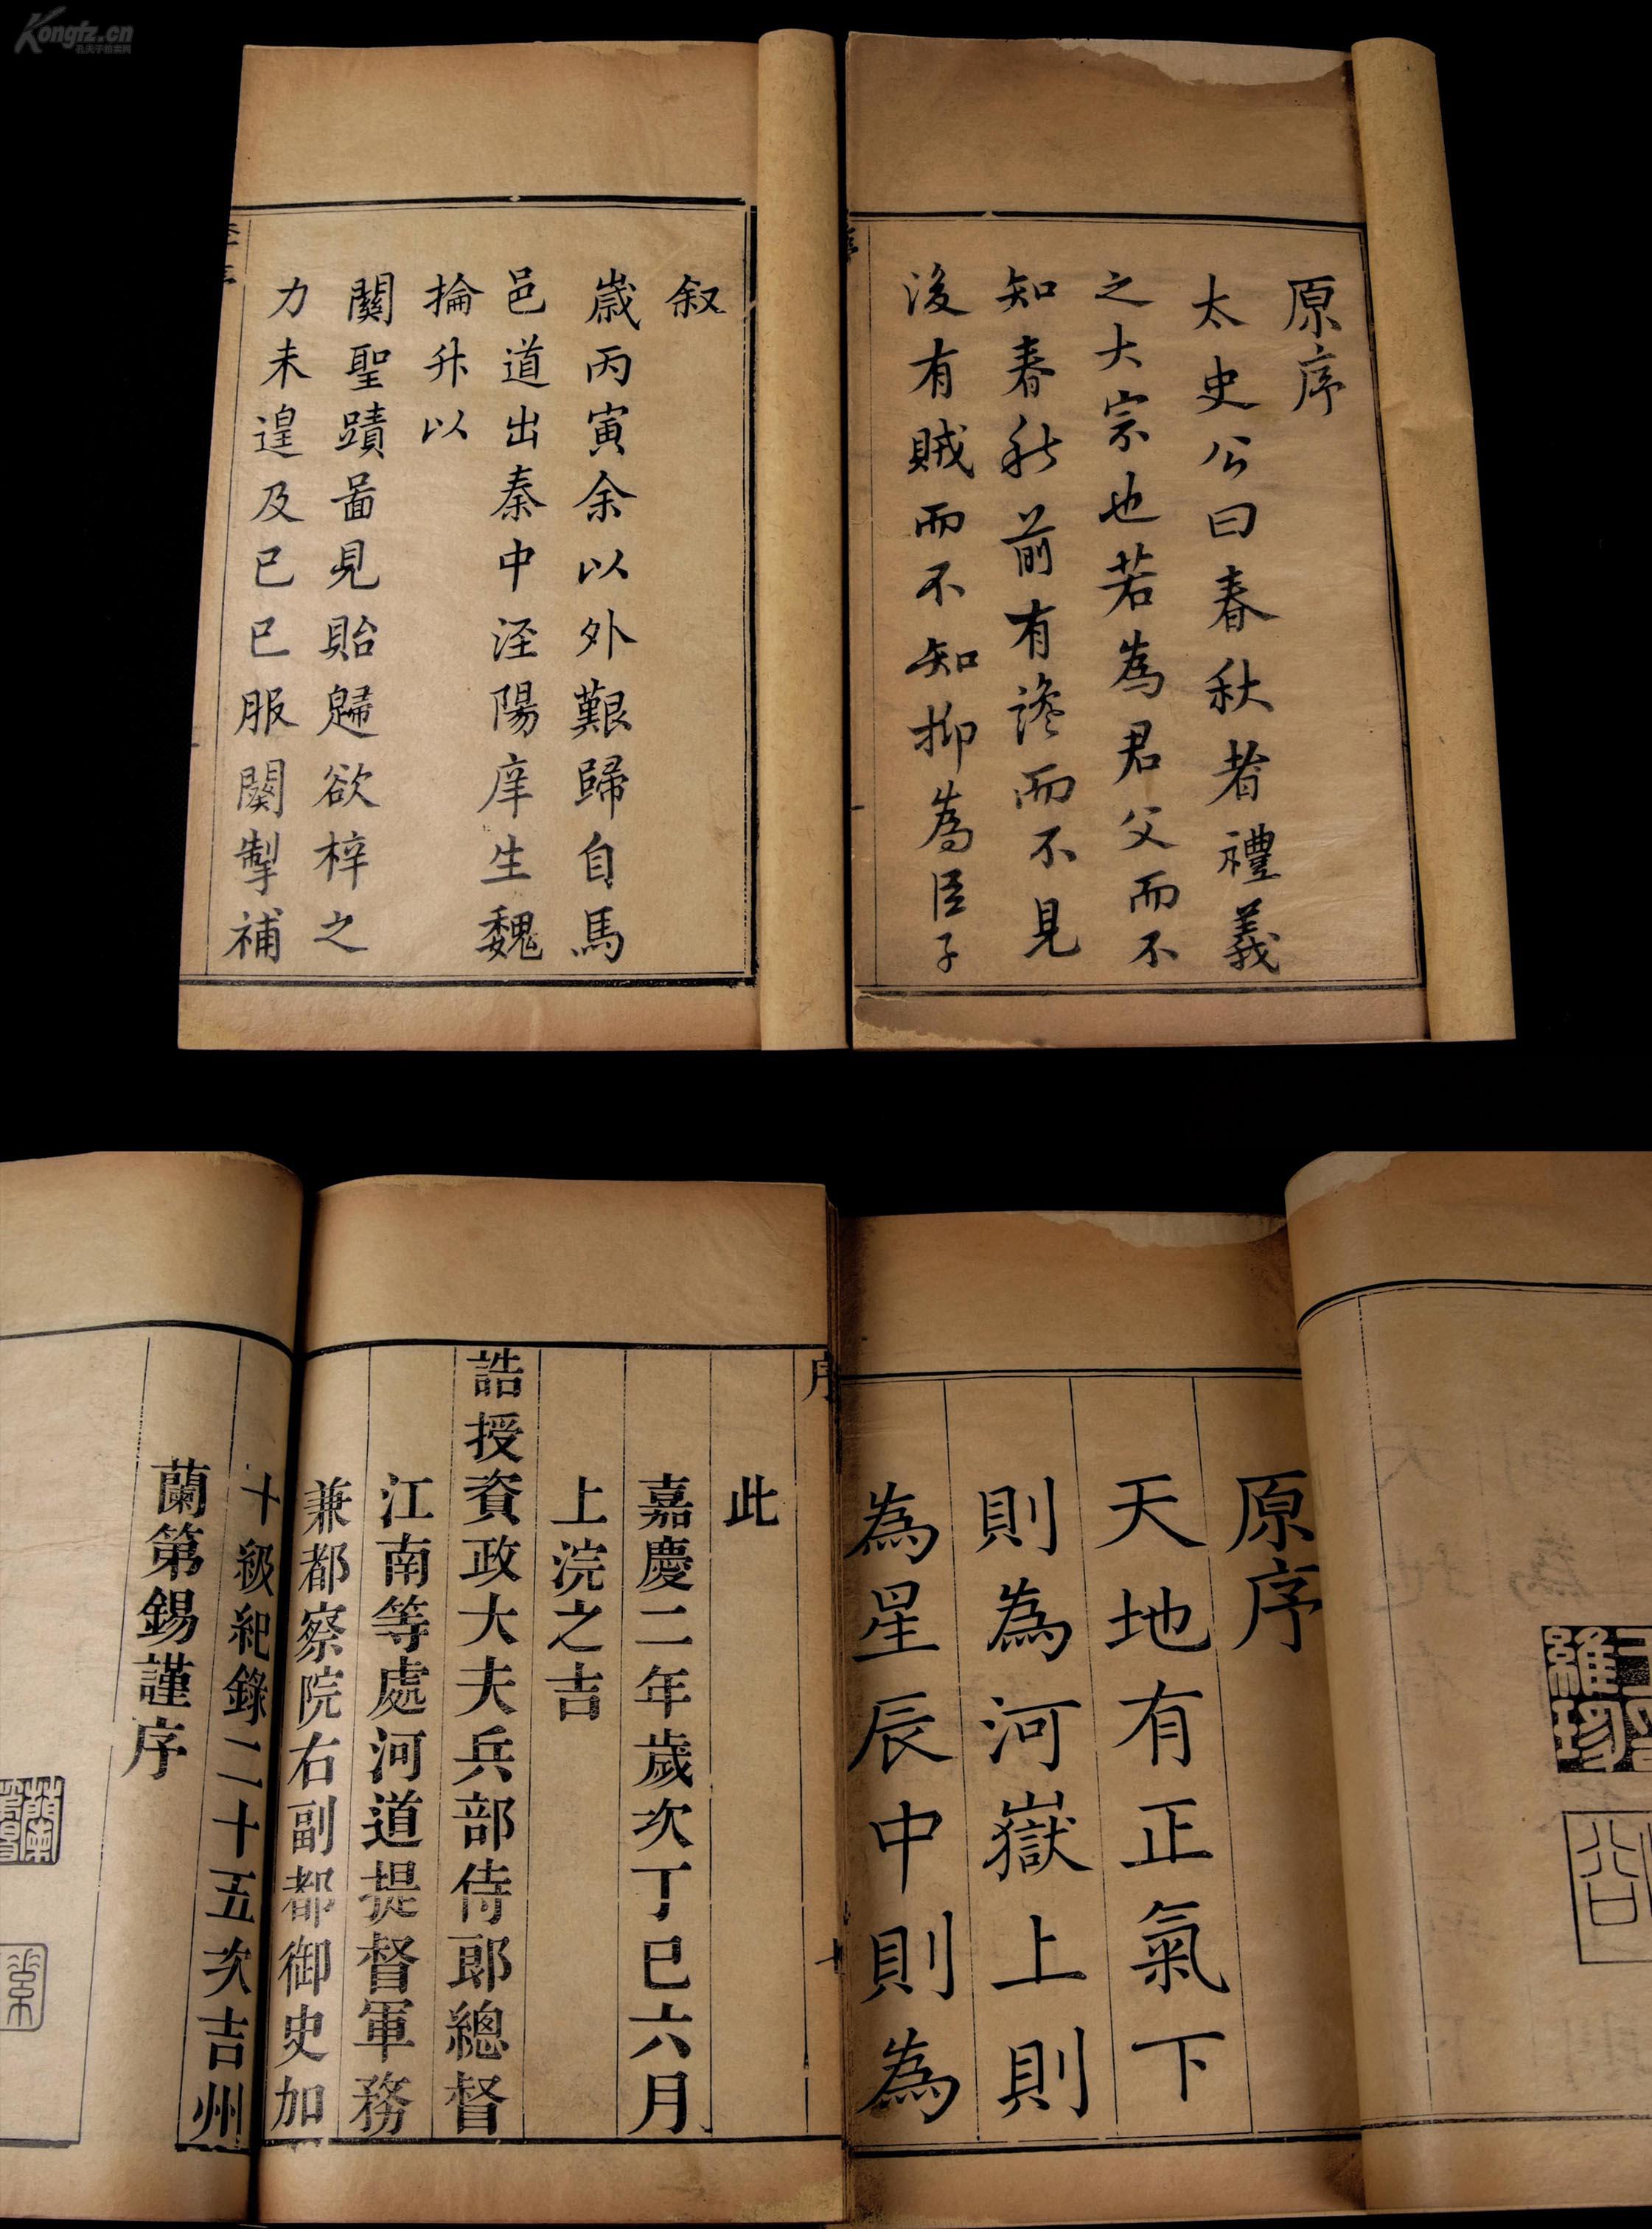 Kongfz.cn
孔夫子拍卖网
原序
太史公曰春秋者禮義
之大宗也若為君父而不
知春秋前有讒而不見
後有賊而不知抑為臣子
叙
歳丙寅余以外艱歸自馬
邑道出秦中涇陽庠生魏
掄升以
關聖蹟啚見貽歸欲梓之
力未遑及已巳服闋掣補
原序
天地有正氣下
則為河嶽上則
為星辰中則為
序
此
嘉慶二年歲次丁巳六月
上浣之吉
誥授資政大夫兵部侍郎總督
江南等處河道提督軍務
兼都察院右副都御史加
十級紀錄二十五次吉州
蘭第錫謹序